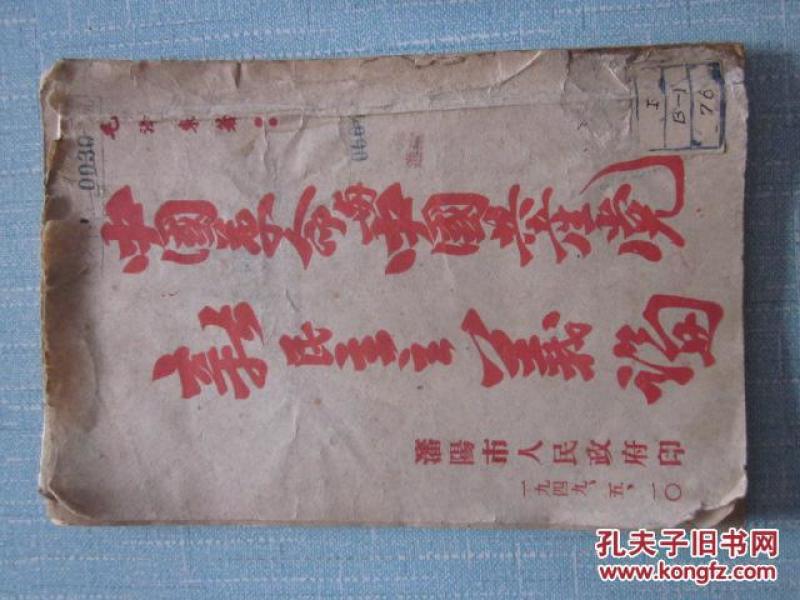 毛澤東著
中國革命與中國共產党
新民主主義論
瀋陽市人民政府印
一九四九、五、一〇
0030
I
B-1
76
孔夫子旧书网
www.kongfz.com